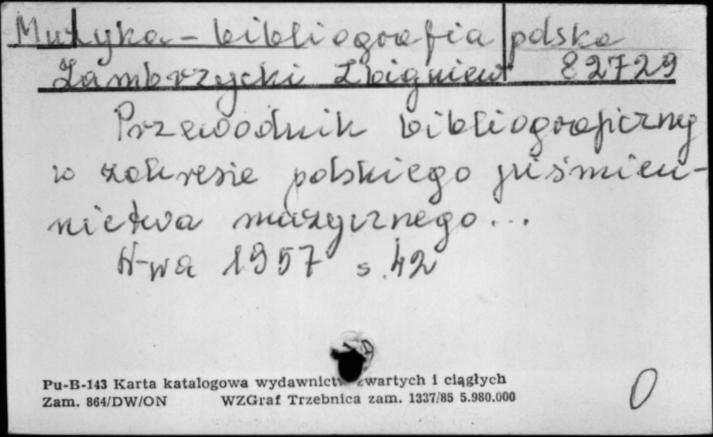 Muzyka - bibliografia polska
Zambrzycki Zbigniew 82729
Przewodnik bibliograficzny
w zakresie polskiego piśmien-
nictwa muzycznego...
W-wa 1957 s. 42
Pu-B-143 Karta katalogowa wydawnictw zwartych i ciągłych
Zam. 864/DW/ON WZGraf Trzebnica zam. 1337/85 5.980.000
0